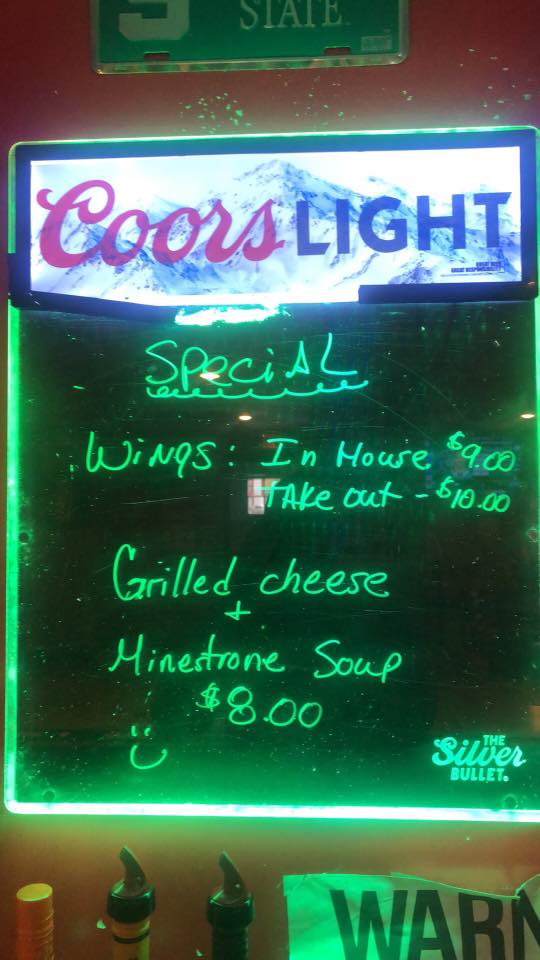 STATE
Coors LIGHT
Special
Wings: In House $9.00
Take out - $10.00
Grilled cheese
+
Minestrone Soup
$8.00
THE
Silver
BULLET.
WARN